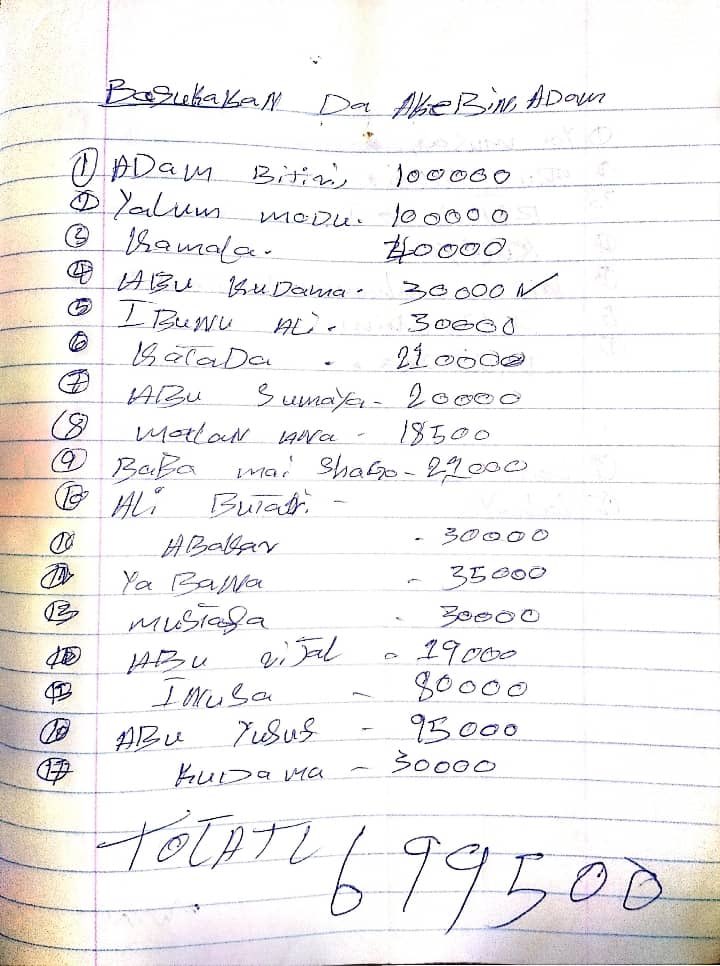 BaSukaKaN Da AkeBiN, ADam
① ADam Bitiri, 100000
② Yalum moDu. 100000
③ Kamala. 40000
④ ABu KuDama. 30000 ✓
⑤ IBuNu ALi. 30000
⑥ KaTaDa . 210000
⑦ ABu Sumaya - 20000
⑧ mallaN ANa - 18500
⑨ BaBa mai ShaGo - 22000
⑩ ALi Butati. -
⑪ ABaKar . 30000
⑫ Ya BaNa - 35000
⑬ muSTaFa . 30000
⑭ ABu ziJal = 19000
⑮ INuSa - 80000
⑯ ABu YuSuS - 95000
⑰ KuDama - 30000
TOTATL 699500